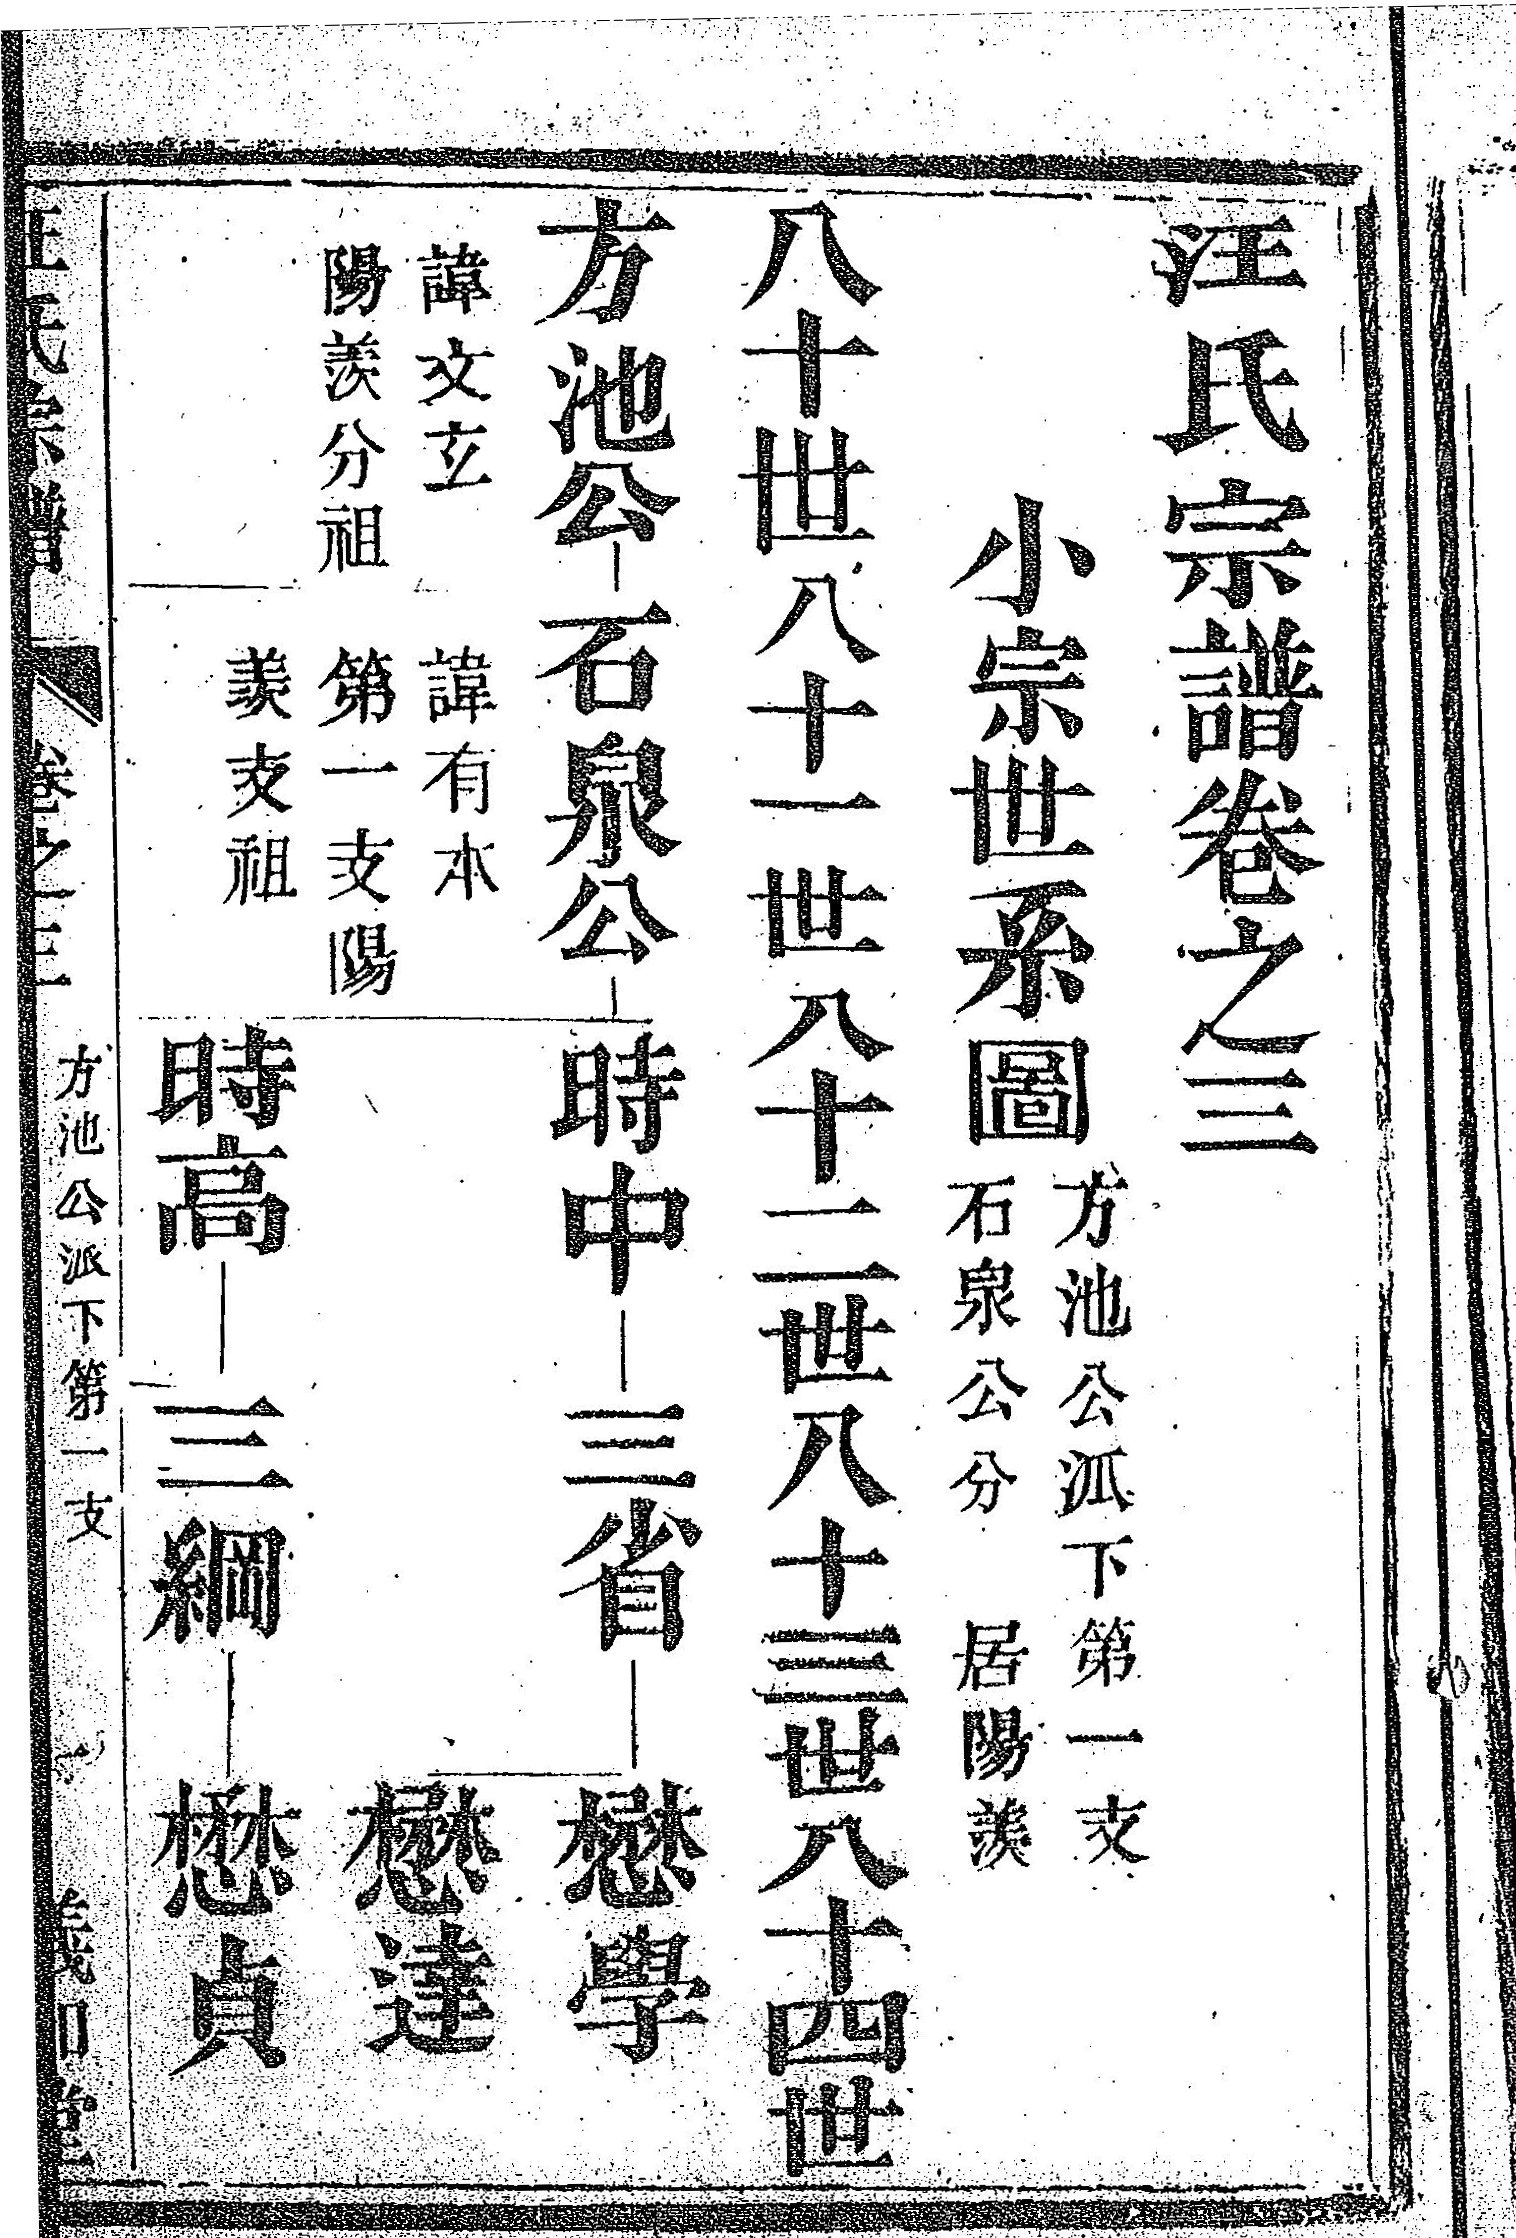 汪氏宗譜卷之三
小宗世系圖
方池公派下第一支
石泉公分 居陽羨
八十世 八十一世 八十二世 八十三世 八十四世
方池公 石泉公 時中 三省 懋學
諱文玄 諱有本 懋達
陽羨分祖 第一支陽
羨支祖
時高 三綱 懋貞
汪氏宗譜 卷之三 方池公派下第一支 一